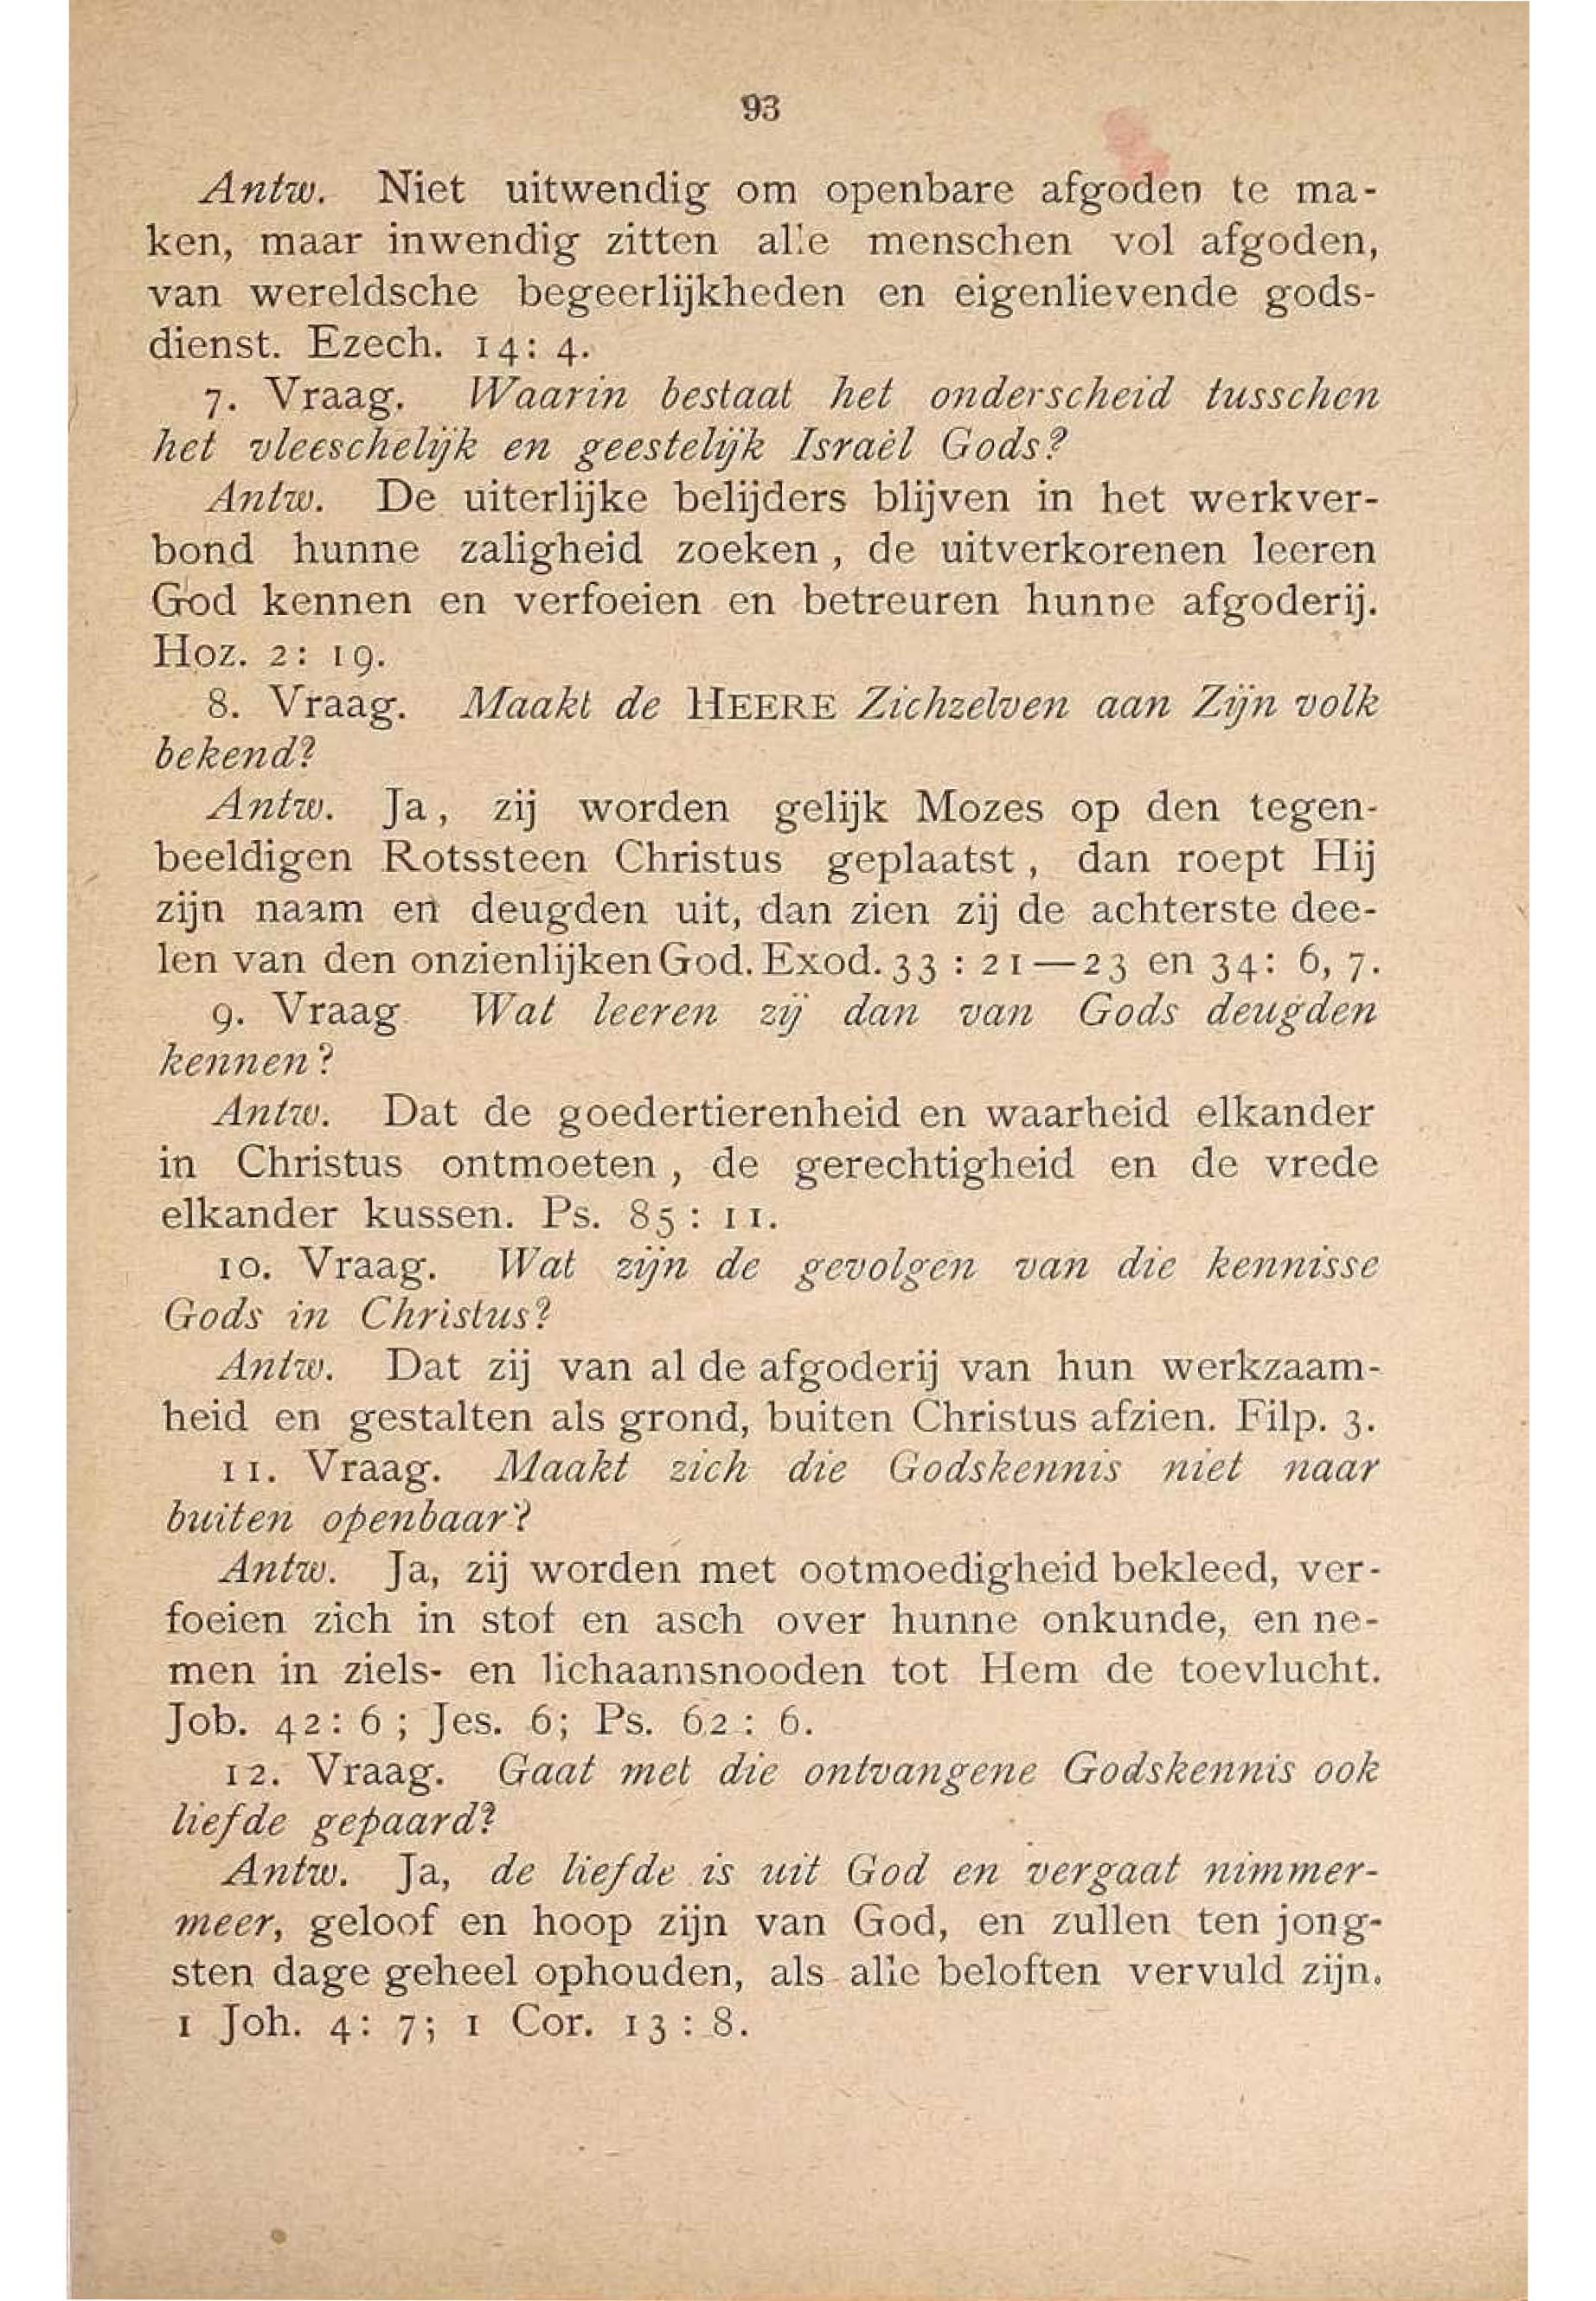 93
Antw. Niet uitwendig om openbare afgoden te ma-
ken, maar inwendig zitten alle menschen vol afgoden,
van wereldsche begeerlijkheden en eigenlievende gods-
dienst. Ezech. 14: 4.
7. Vraag. Waarin bestaat het onderscheid tusschen
het vleeschelijk en geestelijk Israël Gods?
Antw. De uiterlijke belijders blijven in het werkver-
bond hunne zaligheid zoeken, de uitverkorenen leeren
God kennen en verfoeien en betreuren hunne afgoderij.
Hoz. 2: 19.
8. Vraag. Maakt de HEERE Zichzelven aan Zijn volk
bekend?
Antw. Ja, zij worden gelijk Mozes op den tegen-
beeldigen Rotssteen Christus geplaatst, dan roept Hij
zijn naam en deugden uit, dan zien zij de achterste dee-
len van den onzienlijken God. Exod. 33 : 21—23 en 34: 6, 7.
9. Vraag Wat leeren zij dan van Gods deugden
kennen?
Antw. Dat de goedertierenheid en waarheid elkander
in Christus ontmoeten, de gerechtigheid en de vrede
elkander kussen. Ps. 85 : 11.
10. Vraag. Wat zijn de gevolgen van die kennisse
Gods in Christus?
Antw. Dat zij van al de afgoderij van hun werkzaam-
heid en gestalten als grond, buiten Christus afzien. Filp. 3.
11. Vraag. Maakt zich die Godskennis niet naar
buiten openbaar?
Antw. Ja, zij worden met ootmoedigheid bekleed, ver-
foeien zich in stof en asch over hunne onkunde, en ne-
men in ziels- en lichaamsnooden tot Hem de toevlucht.
Job. 42: 6 ; Jes. 6; Ps. 62 : 6.
12. Vraag. Gaat met die ontvangene Godskennis ook
liefde gepaard?
Antw. Ja, de liefde is uit God en vergaat nimmer-
meer, geloof en hoop zijn van God, en zullen ten jong-
sten dage geheel ophouden, als alle beloften vervuld zijn.
1 Joh. 4: 7; 1 Cor. 13 : 8.